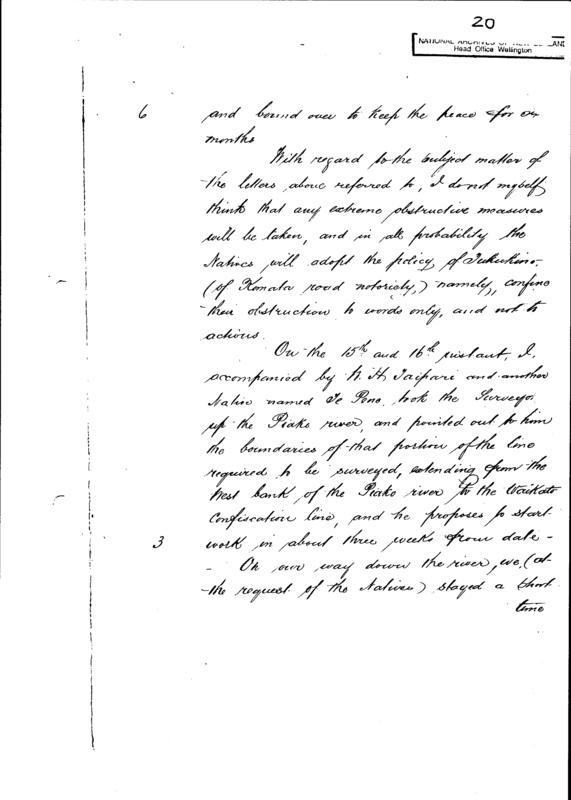 20
NATIONAL ARCHIVES OF NEW ZEALAND
Head Office Wellington
6 and bound over to keep the peace for six
months
With regard to the subject matter of
the letters above referred to, I do not myself
think that any extreme obstructive measures
will be taken, and in all probability the
Natives will adopt the policy of Tukukino.
(of Komata road notoriety,) namely, confine
their obstruction to words only, and not to
actions.
On the 15th and 16th instant, I,
accompanied by W. H. Taipari and another
Native named Te Pono, took the Surveyor
up the Piako river, and pointed out to him
the boundaries of that portion of the line
required to be surveyed, extending from the
West bank of the Piako river to the Waikato
Confiscation line, and he proposes to start
3 work in about three weeks from date -
- On our way down the river, we, (at
the request of the Natives) stayed a short
time